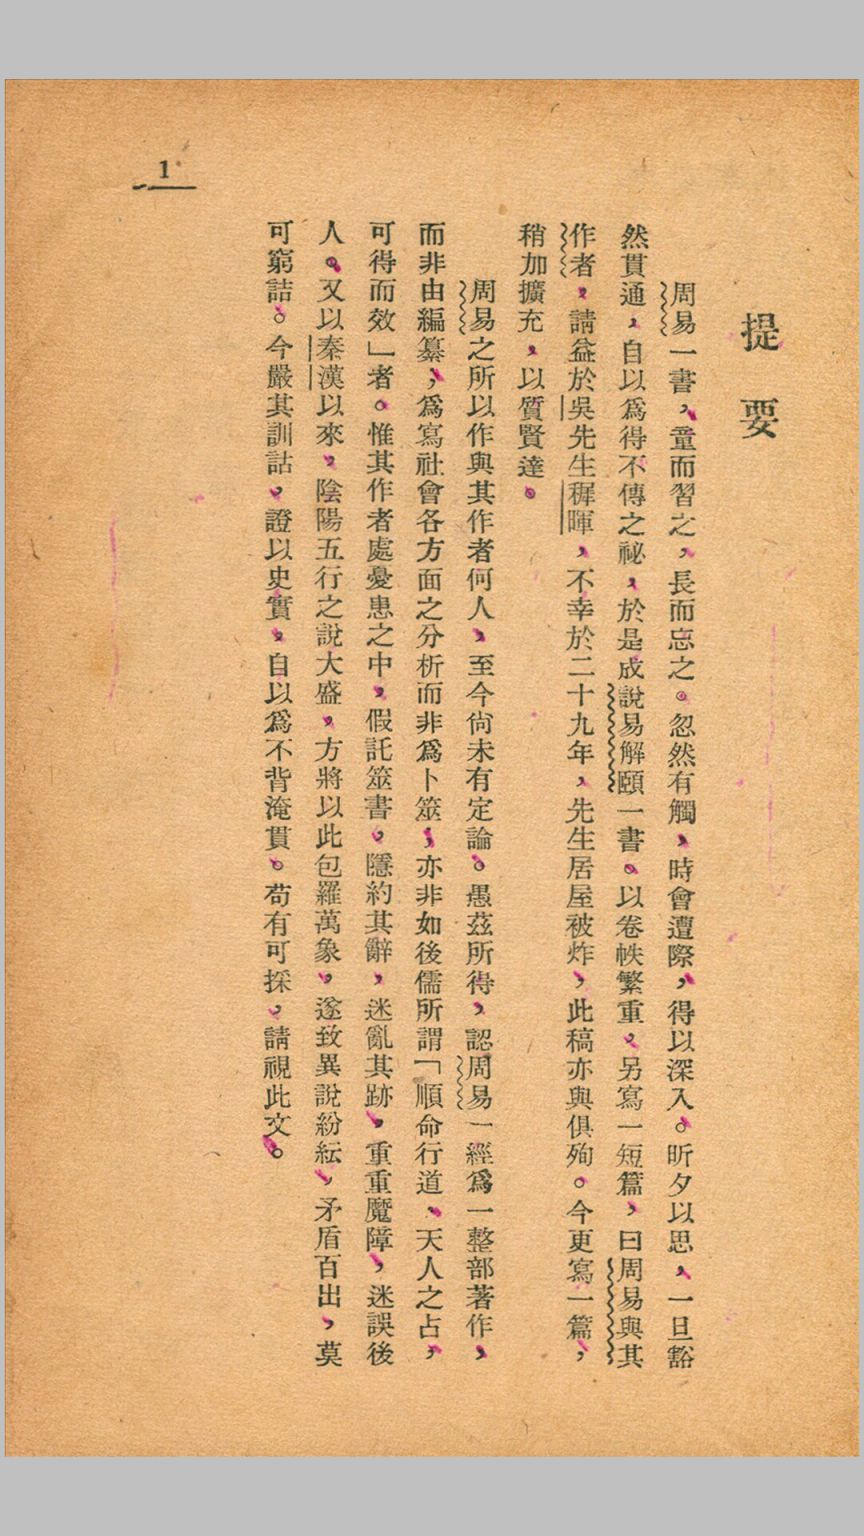 提要
周易一書，童而習之，長而忘之。忽然有觸，時會遭際，得以深入。昕夕以思，一旦豁
然貫通，自以爲得不傳之祕，於是成說易解頤一書。以卷帙繁重，另寫一短篇，曰周易與其
作者，請益於吳先生穉暉，不幸於二十九年，先生居屋被炸，此稿亦與俱殉。今更寫一篇，
稍加擴充，以質賢達。
周易之所以作與其作者何人，至今尙未有定論。愚茲所得，認周易一經爲一整部著作，
而非由編纂，爲寫社會各方面之分析而非爲卜筮，亦非如後儒所謂「順命行道、天人之占，
可得而效」者。惟其作者處憂患之中，假託筮書，隱約其辭，迷亂其跡，重重魔障，迷誤後
人。又以秦漢以來，陰陽五行之說大盛，方將以此包羅萬象，遂致異說紛紜，矛盾百出，莫
可窮詰。今嚴其訓詁，證以史實，自以爲不背淹貫。苟有可採，請視此文。
1